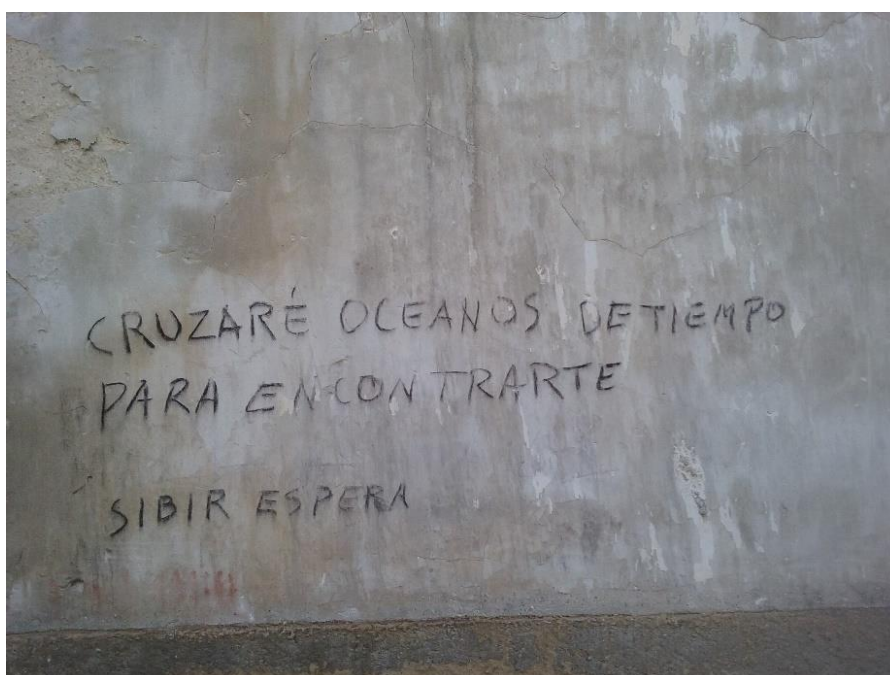 CRUZARÉ OCEANOS DE TIEMPO
PARA ENCONTRARTE
SIBIR ESPERA